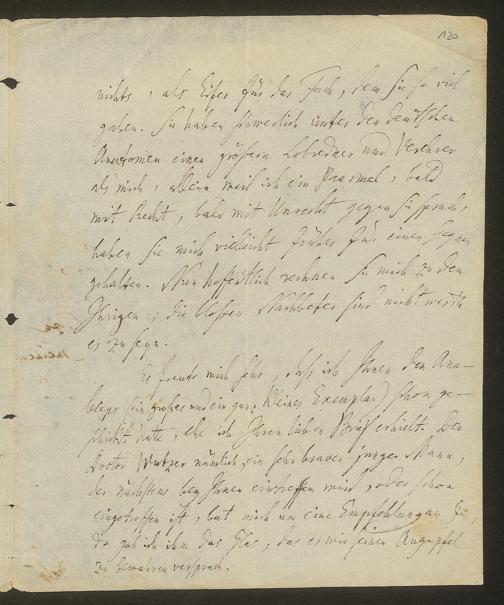 120
nichts, als Eifer für das Fach, dem Sie so viel
gaben. Sie haben schwerlich unter den deutschen
Anatomen einen größern Lobredner und Verehrer
als mich, allein weil ich ein Paarmal, bald
mit Recht, bald mit Unrecht gegen Sie sprach,
haben Sie mich vielleicht früher für einen Gegner
gehalten. Nun hoffentlich rechnen Sie mich zu den
Ihrigen; die bloßen Nachbeter sind nicht werth
es zu seyn.
Es freute mich sehr, daß ich Ihnen den Ana-
bleps (ein und ein ganz kleines Exemplar) schon ge-
schickt hatte, ehe ich Ihren lieben Brief erhielt. Der
Doctor Wutzer nämlich, ein sehr braver junger Mann,
der nächstens bey Ihnen eintreffen wird, oder schon
eingetroffen ist, bat mich um eine Empfehlung an Sie,
da gab ich ihm das Glas, das er wie seinen Augapfel
zu bewahren versprach.